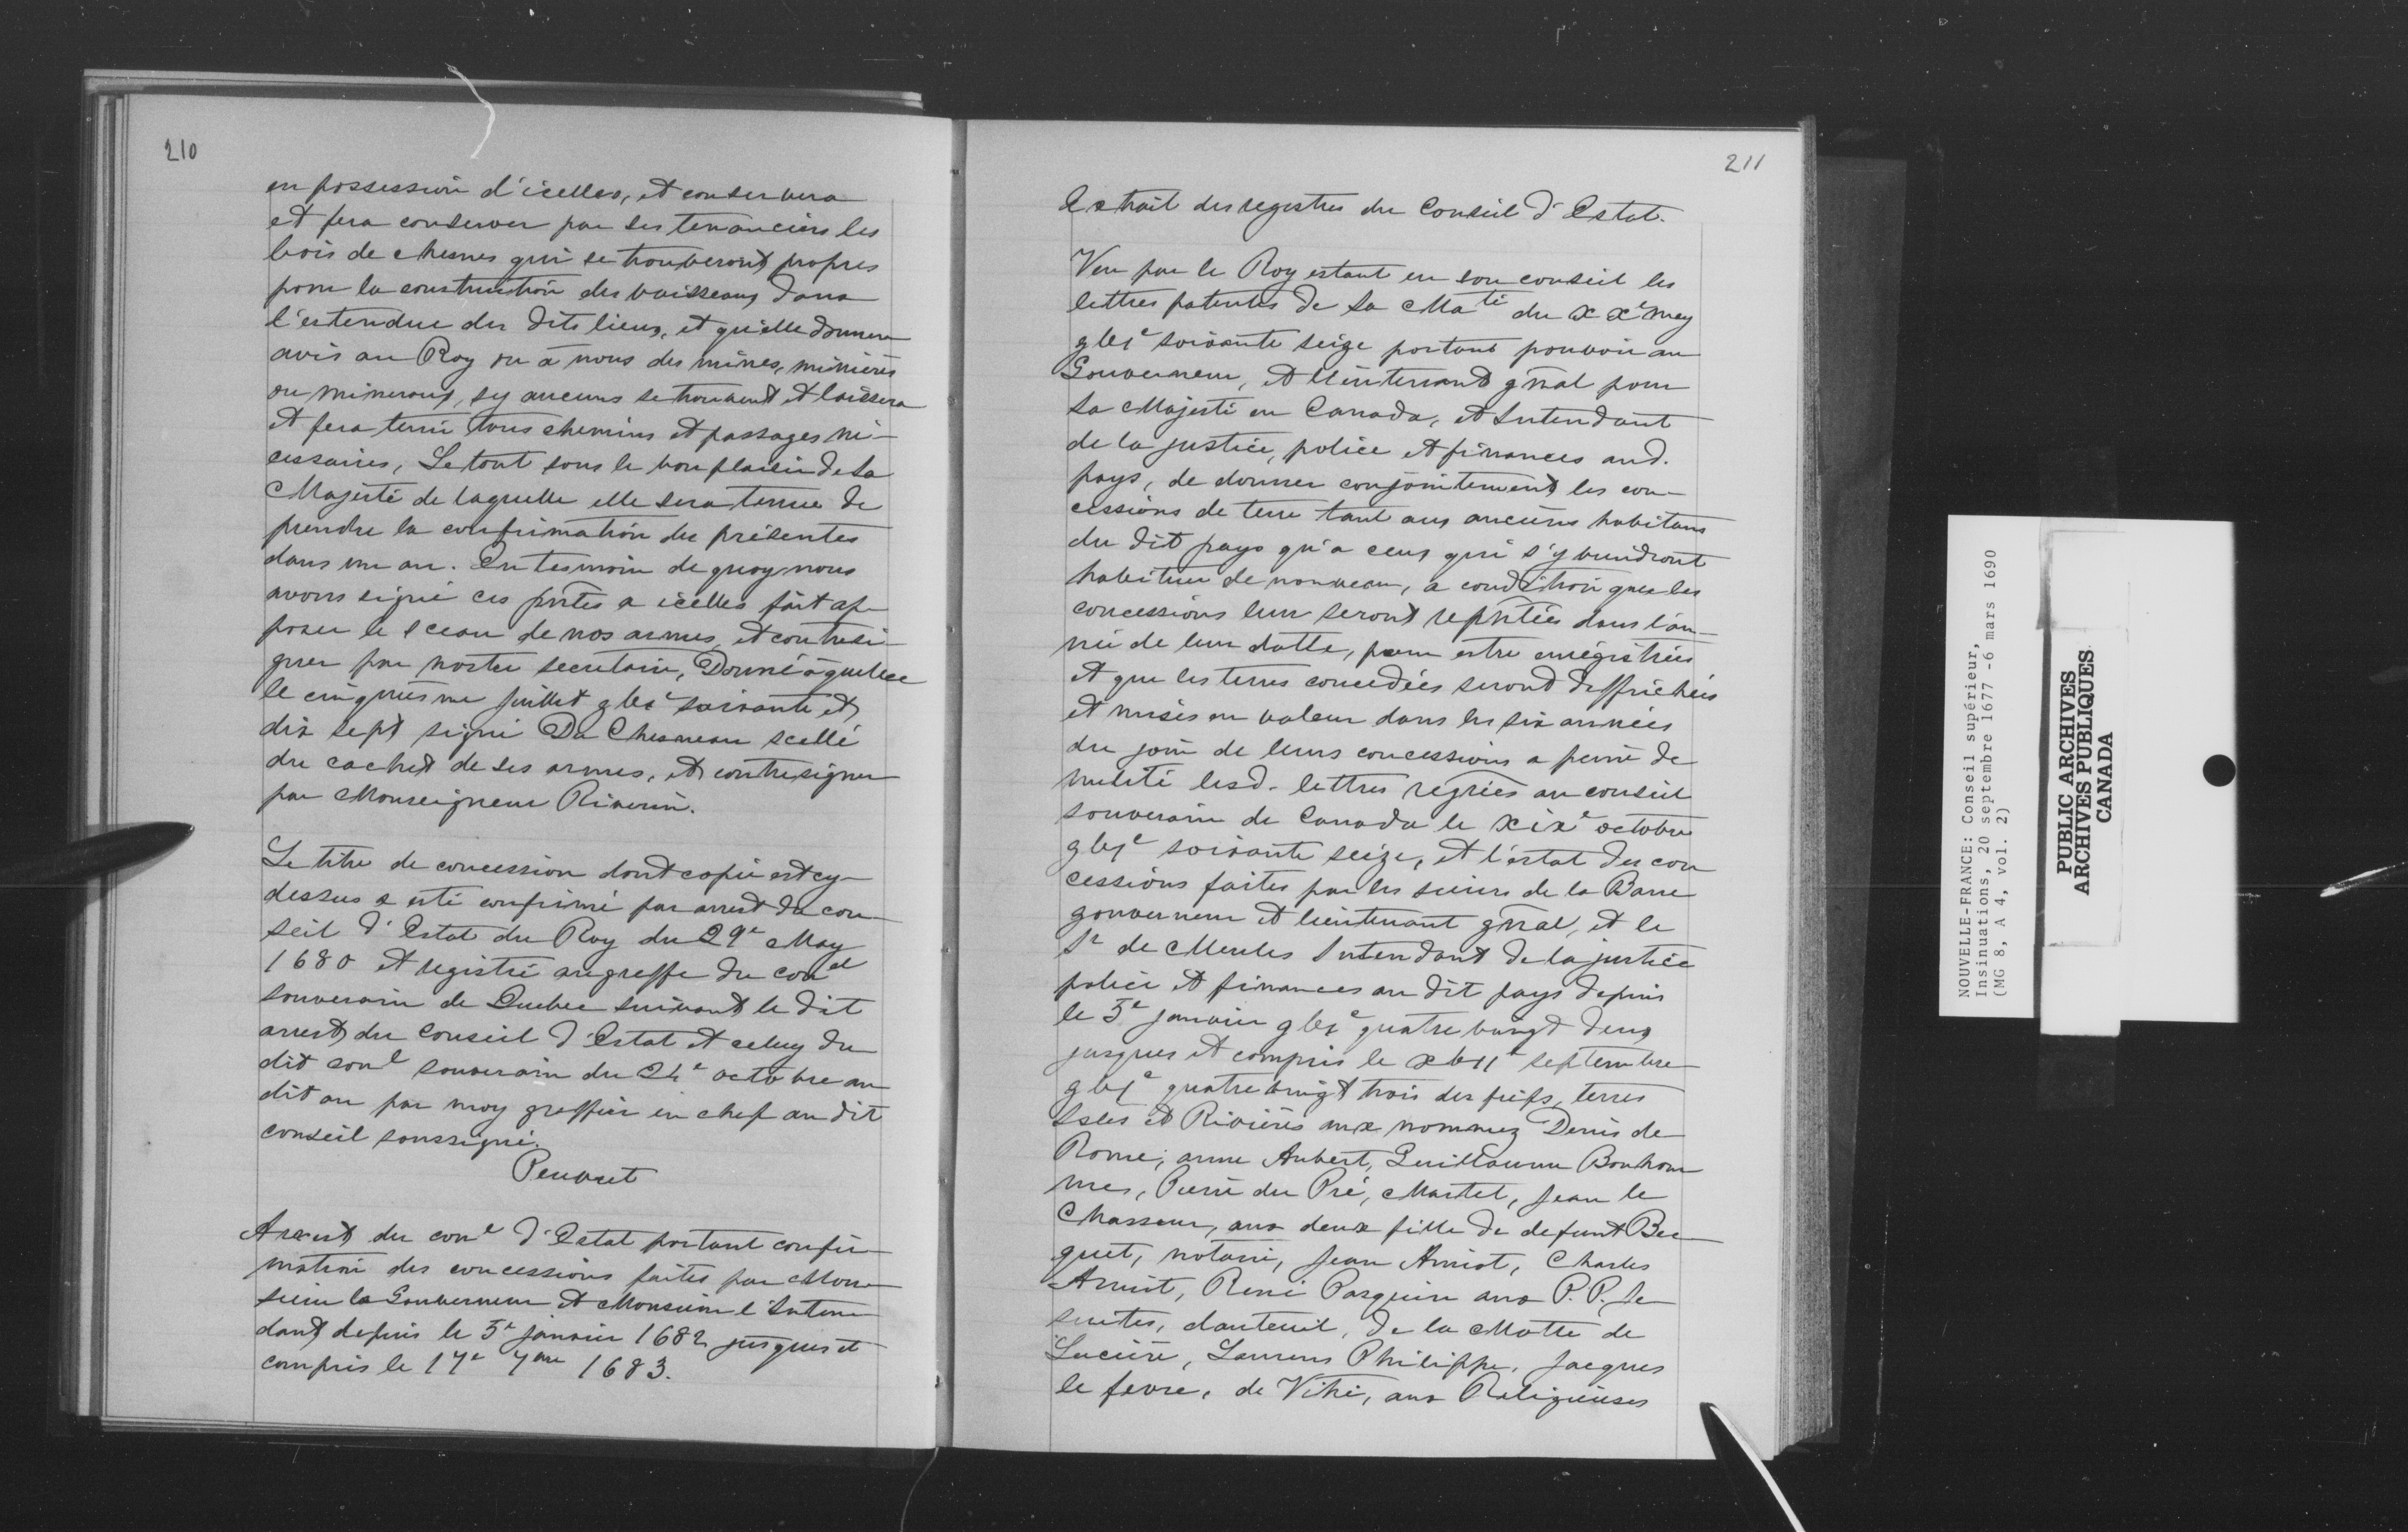 210
en possession d'icelles, et conservera
et fera conserver par ses tenanciers les
bois de chesnes qui se trouveront propres
pour la construction des vaisseaux dans
l'estendue des dits lieux, et qu'elle donnera
avis au Roy ou à nous des mines, minières
ou mineraux, sy aucuns se trouvent et laissera
et fera tenir tous chemins et passages né-
cessaires, Le tout sous le bon plaisir de Sa
Majesté de laquelle elle sera tenue de
prendre la confirmation des présentes
dans un an. En tesmoin de quoy nous
avons signé ces pntes a icelles fait ap-
poser le sceau de nos armes, et contresi-
gner par nostre secretaire, Donné à quebec
le cinquiesme juillet gbic soixante et
dix sept signé Du Chesneau scellé
du cachet de ses armes, et contresigner
par Monseigneur Riverin.
Le titre de concession dont copie est cy-
dessus a esté confirmé par arrest du con-
seil d'Estat du Roy du 29e May
1680 et registré au greffe du conel
souverain de Quebec suivant le dit
arrest du Conseil d'Estat et celuy du
dit conl souverain du 24e octobre au
dit an par moy greffier en chef au dit
conseil soussigné.
Peuvret
Arrest du conl d'Estat portant confir-
mation des concessions faites par Mon-
sieur le Gouverneur et Monsieur l'Inten-
dant depuis le 5e janvier 1682 jusques et
compris le 17e 7bre 1683.
211
Extrait des registres du Conseil d'Estat.
Veu par le Roy estant en son conseil les
lettres patentes de Sa Mati du xxe may
gbic soixante seize portant pouvoir au
Gouverneur, et lieutenant gnal pour
Sa Majesté en Canada, et Intendant
de la justice, police et finances aud.
pays, de donner conjointement les con-
cessions de terre tant aux anciens habitans
du dit pays qu'a ceux qui s'y viendront
habituer de nouveau, a condition que les
concessions leur seront repntées dans l'an-
née de leur datte, pour estre enrégistrées
et que les terres concedées seront deffrichées
et mises en valeur dans les six années
du jour de leurs concessions a peine de
nulité lesd. lettres regrées au conseil
souverain de Canada le xixe octobre
gbic soixante seize, et l'estat des con
cessions faites par les sieurs de la Barre
gouverneur et lieutenant gnal, et le
Sr de Meules Intendant de la justice
police et finances au dit pays depuis
le 5e janvier gbic quatre vingt deux
jusques et compris le xbiie septembre
gbic quatre vingt trois des fiefs, terres
Isles et Rivières aux nommez Denis de
Rome, anne Aubert, Guillaume Bonhom
mes, Pierre du Pré, Martel, Jean le
Chasseur, aux deux fille de defunt Bec-
quet, notaire, Jean Amiot, Charles
Amiot, René Pasquin aux P.P. Je-
suites, dauteuil, de la Motte de
Luciere, Laurens Philippe, Jacques
le fevre, de Vitré, aux Religieuses
NOUVELLE-FRANCE: Conseil supérieur,
Insinuations, 20 septembre 1677 -6 mars 1690
(MG 8, A 4, vol. 2)
PUBLIC ARCHIVES
ARCHIVES PUBLIQUES
CANADA